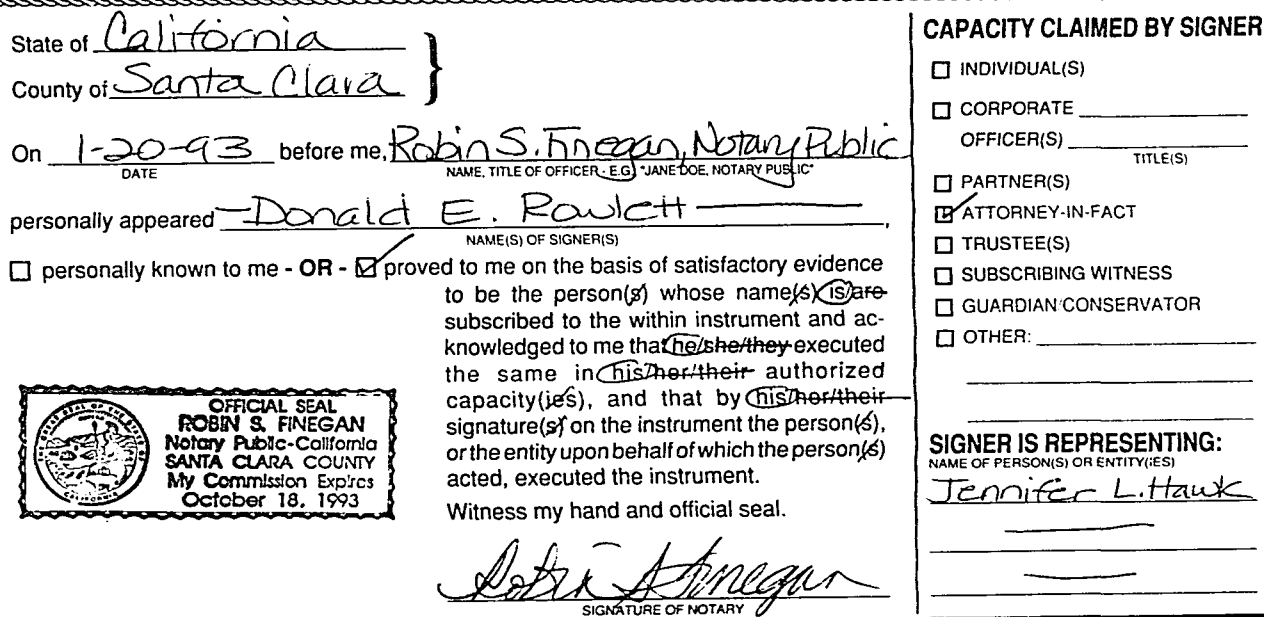 State of California
County of Santa Clara
On 1-20-93 before me, Robin S. Finegan, Notary Public
DATE
NAME, TITLE OF OFFICER - E.G. "JANE DOE, NOTARY PUBLIC"
personally appeared Donald E. Rowlett,
NAME(S) OF SIGNER(S)
personally known to me - OR - proved to me on the basis of satisfactory evidence
to be the person(s) whose name(s) is/are
subscribed to the within instrument and ac-
knowledged to me that he/she/they executed
the same in his/her/their authorized
capacity(ies), and that by his/her/their
signature(s) on the instrument the person(s),
or the entity upon behalf of which the person(s)
acted, executed the instrument.
Witness my hand and official seal.
Robin S Finegan
SIGNATURE OF NOTARY
OFFICIAL SEAL
ROBIN S. FINEGAN
Notary Public-California
SANTA CLARA COUNTY
My Commission Expires
October 18, 1993
CAPACITY CLAIMED BY SIGNER
INDIVIDUAL(S)
CORPORATE
OFFICER(S)
TITLE(S)
PARTNER(S)
ATTORNEY-IN-FACT
TRUSTEE(S)
SUBSCRIBING WITNESS
GUARDIAN/CONSERVATOR
OTHER:
SIGNER IS REPRESENTING:
NAME OF PERSON(S) OR ENTITY(IES)
Jennifer L. Hawk